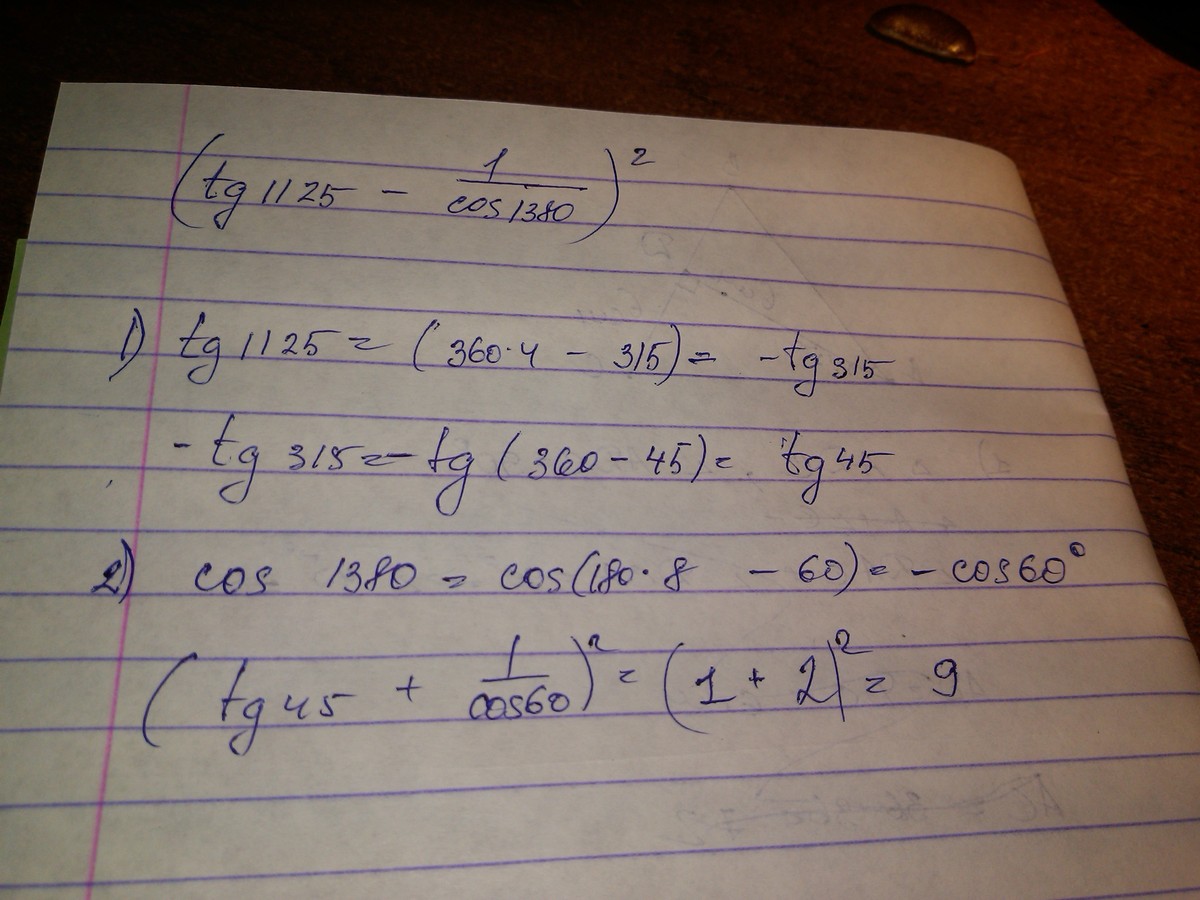 (tg 1125 - 1/cos 1380)²
1) tg 1125 = (360·4 - 315) = -tg 315
-tg 315 = -tg (360 - 45) = tg 45
2) cos 1380 = cos(180·8 - 60) = - cos 60°
(tg 45 + 1/cos60)² = (1 + 2)² = 9